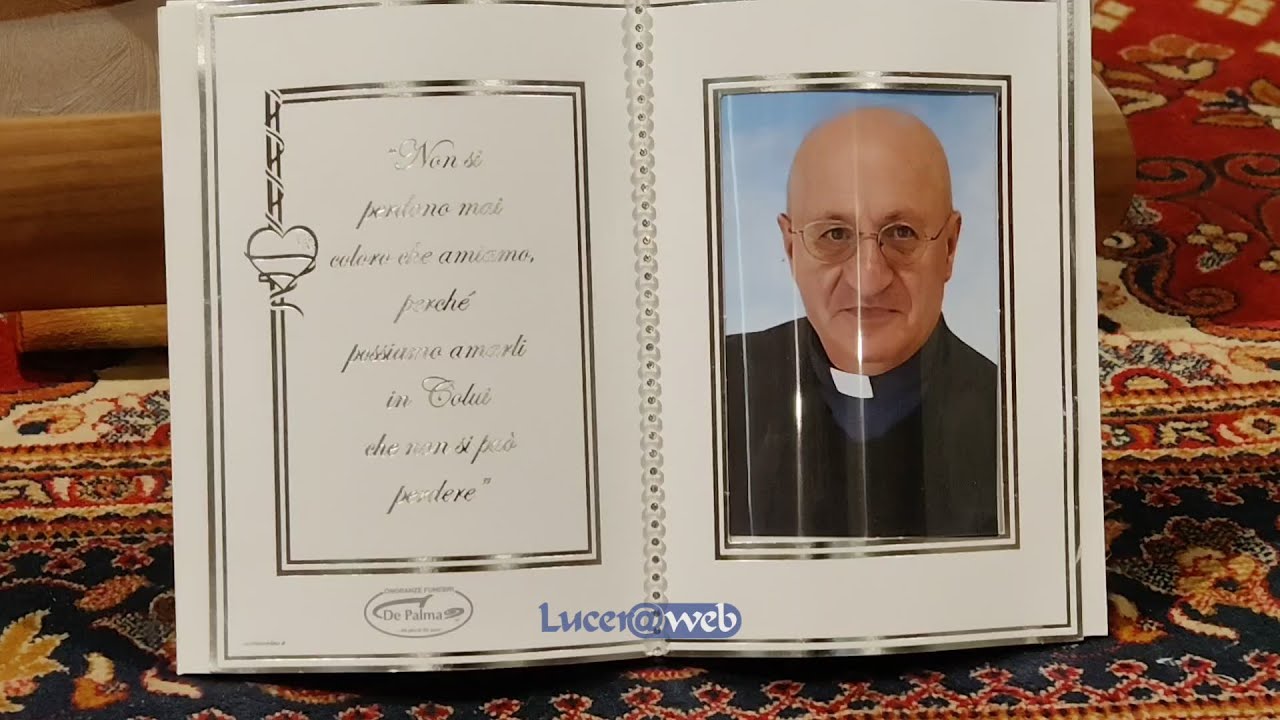 "Non si
perdono mai
coloro che amiamo,
perché
possiamo amarli
in Colui
che non si può
perdere"
ONORANZE FUNEBRI
De Palma
Lucer@web